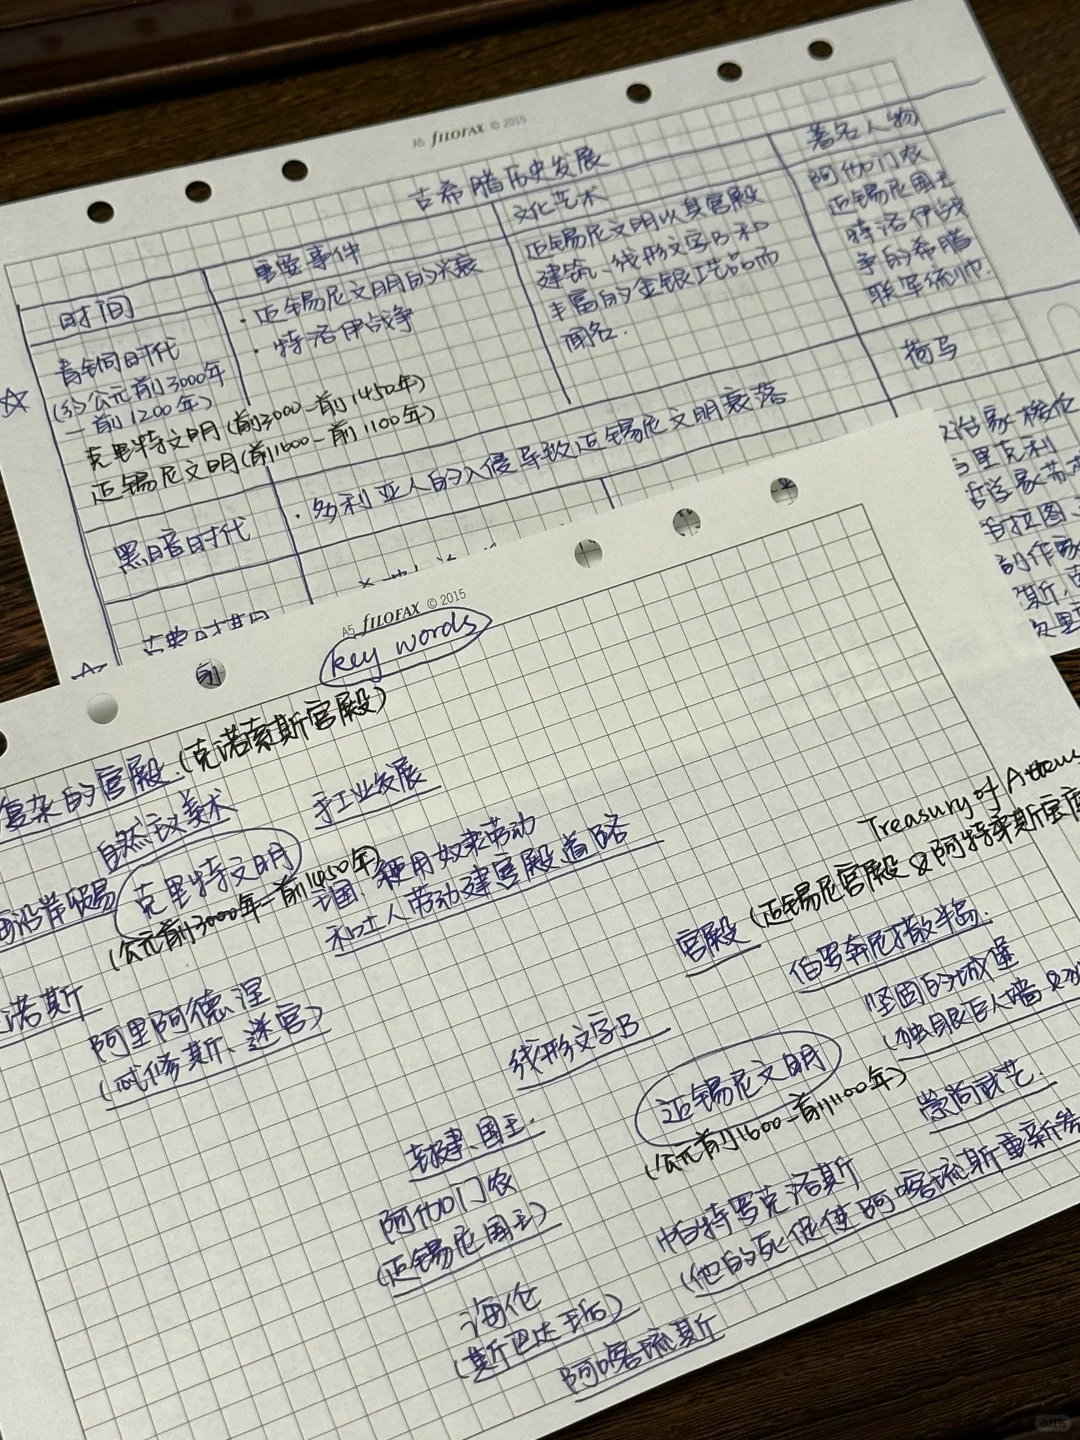 A5 FILOFAX © 2015
古希腊历史发展
时间
重要事件
文化艺术
著名人物
青铜时代
(约公元前3000年
—前1200年)
克里特文明(前3000—前1450年)
迈锡尼文明(前1600—前1100年)
· 迈锡尼文明的兴衰
· 特洛伊战争
迈锡尼文明以其宫殿
建筑、线形文字B和
丰富的金银工艺品而
闻名.
阿伽门农
迈锡尼国王
特洛伊战
争的希腊
联军统帅.
黑暗时代
· 多利亚人的入侵导致迈锡尼文明衰落
荷马
政治家梭伦
里克利
哲学家苏
柏拉图
剧作家
A5 FILOFAX © 2015
前
key words
复杂的宫殿.(克诺索斯宫殿)
自然主义美术
手工业发展
沿岸贸易
克里特文明
(公元前3000年—前1450年)
国王使用奴隶劳动
和工人劳动建宫殿道路
诺斯
阿里阿德涅
(忒修斯、迷宫)
Treasury of Atreus
宫殿(迈锡尼宫殿&阿特柔斯宝库
伯罗奔尼撒半岛.
坚固的城堡
(独眼巨人墙&
线形文字B
迈锡尼文明
(公元前1600—前1100年)
崇尚武艺.
封建、国王.
阿伽门农
(迈锡尼国王)
帕特罗克洛斯
(他的死促使阿喀琉斯重新参
海伦
(斯巴达王后)
阿喀琉斯